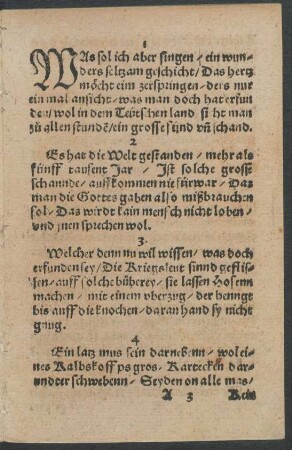 1
WAs sol ich aber singen / ein wun-
ders seltzam geschicht / Das hertz
möcht eim zerspringen / ders nur
ein mal ansicht / was man doch hat erfun
den / wol in dem Teütschen land / si ht man
zů allen stundē / ein grosse sünd vn̄ schand.
2
Es hat die Welt gestanden / mehr als
fünff tausent Jar / Ist solche grosse
schannde / auff kommen nie fürwar / Das
man die Gottes gaben also mißbrauchen
sol / Das wirdt kain mensch nicht loben /
vnd jnen sprechen wol.
3.
Welcher denn nu wil wissen / was doch
erfunden sey / Die Kriegsleut sinnd geflis-
sen / auff solche büberey / sie lassen Hosenn
machen / mit einem vberzug / der henngt
bis auff die knochen / daran hand sy nicht
gnug.
4
Ein latz mus sein darnebenn / wol ei-
nes Kalbskoffps gros / Kartecken dar-
undter schwebenn / Seyden on alle mas /
A 3 Kein